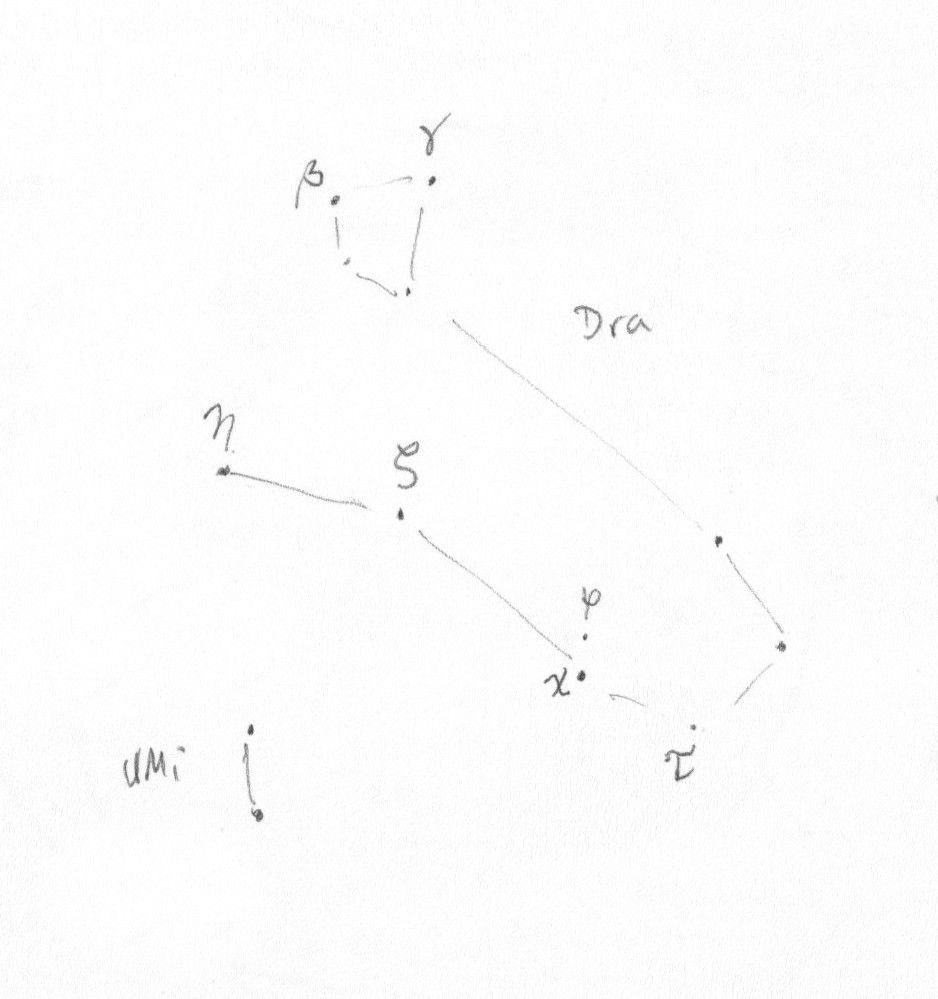 γ
β
Dra
η
ζ
φ
χ
UMi
τ